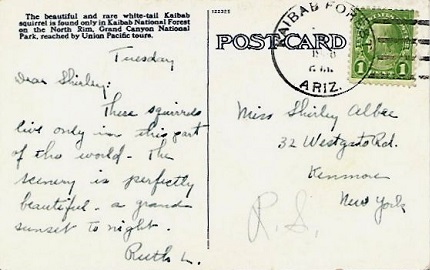 The beautiful and rare white-tail Kaibab
squirrel is found only in Kaibab National Forest
on the North Rim, Grand Canyon National
Park, reached by Union Pacific tours.
122325
POST CARD
KAIBAB FOREST
ARIZ.
1 1
Tuesday
Dear Shirley:
These squirrels
live only in this part
of the world - The
scenery is perfectly
beautiful - a grand
sunset to night.
Ruth L.
Miss Shirley Albee
32 Westgate Rd.
Kenmore
New York
R.S.